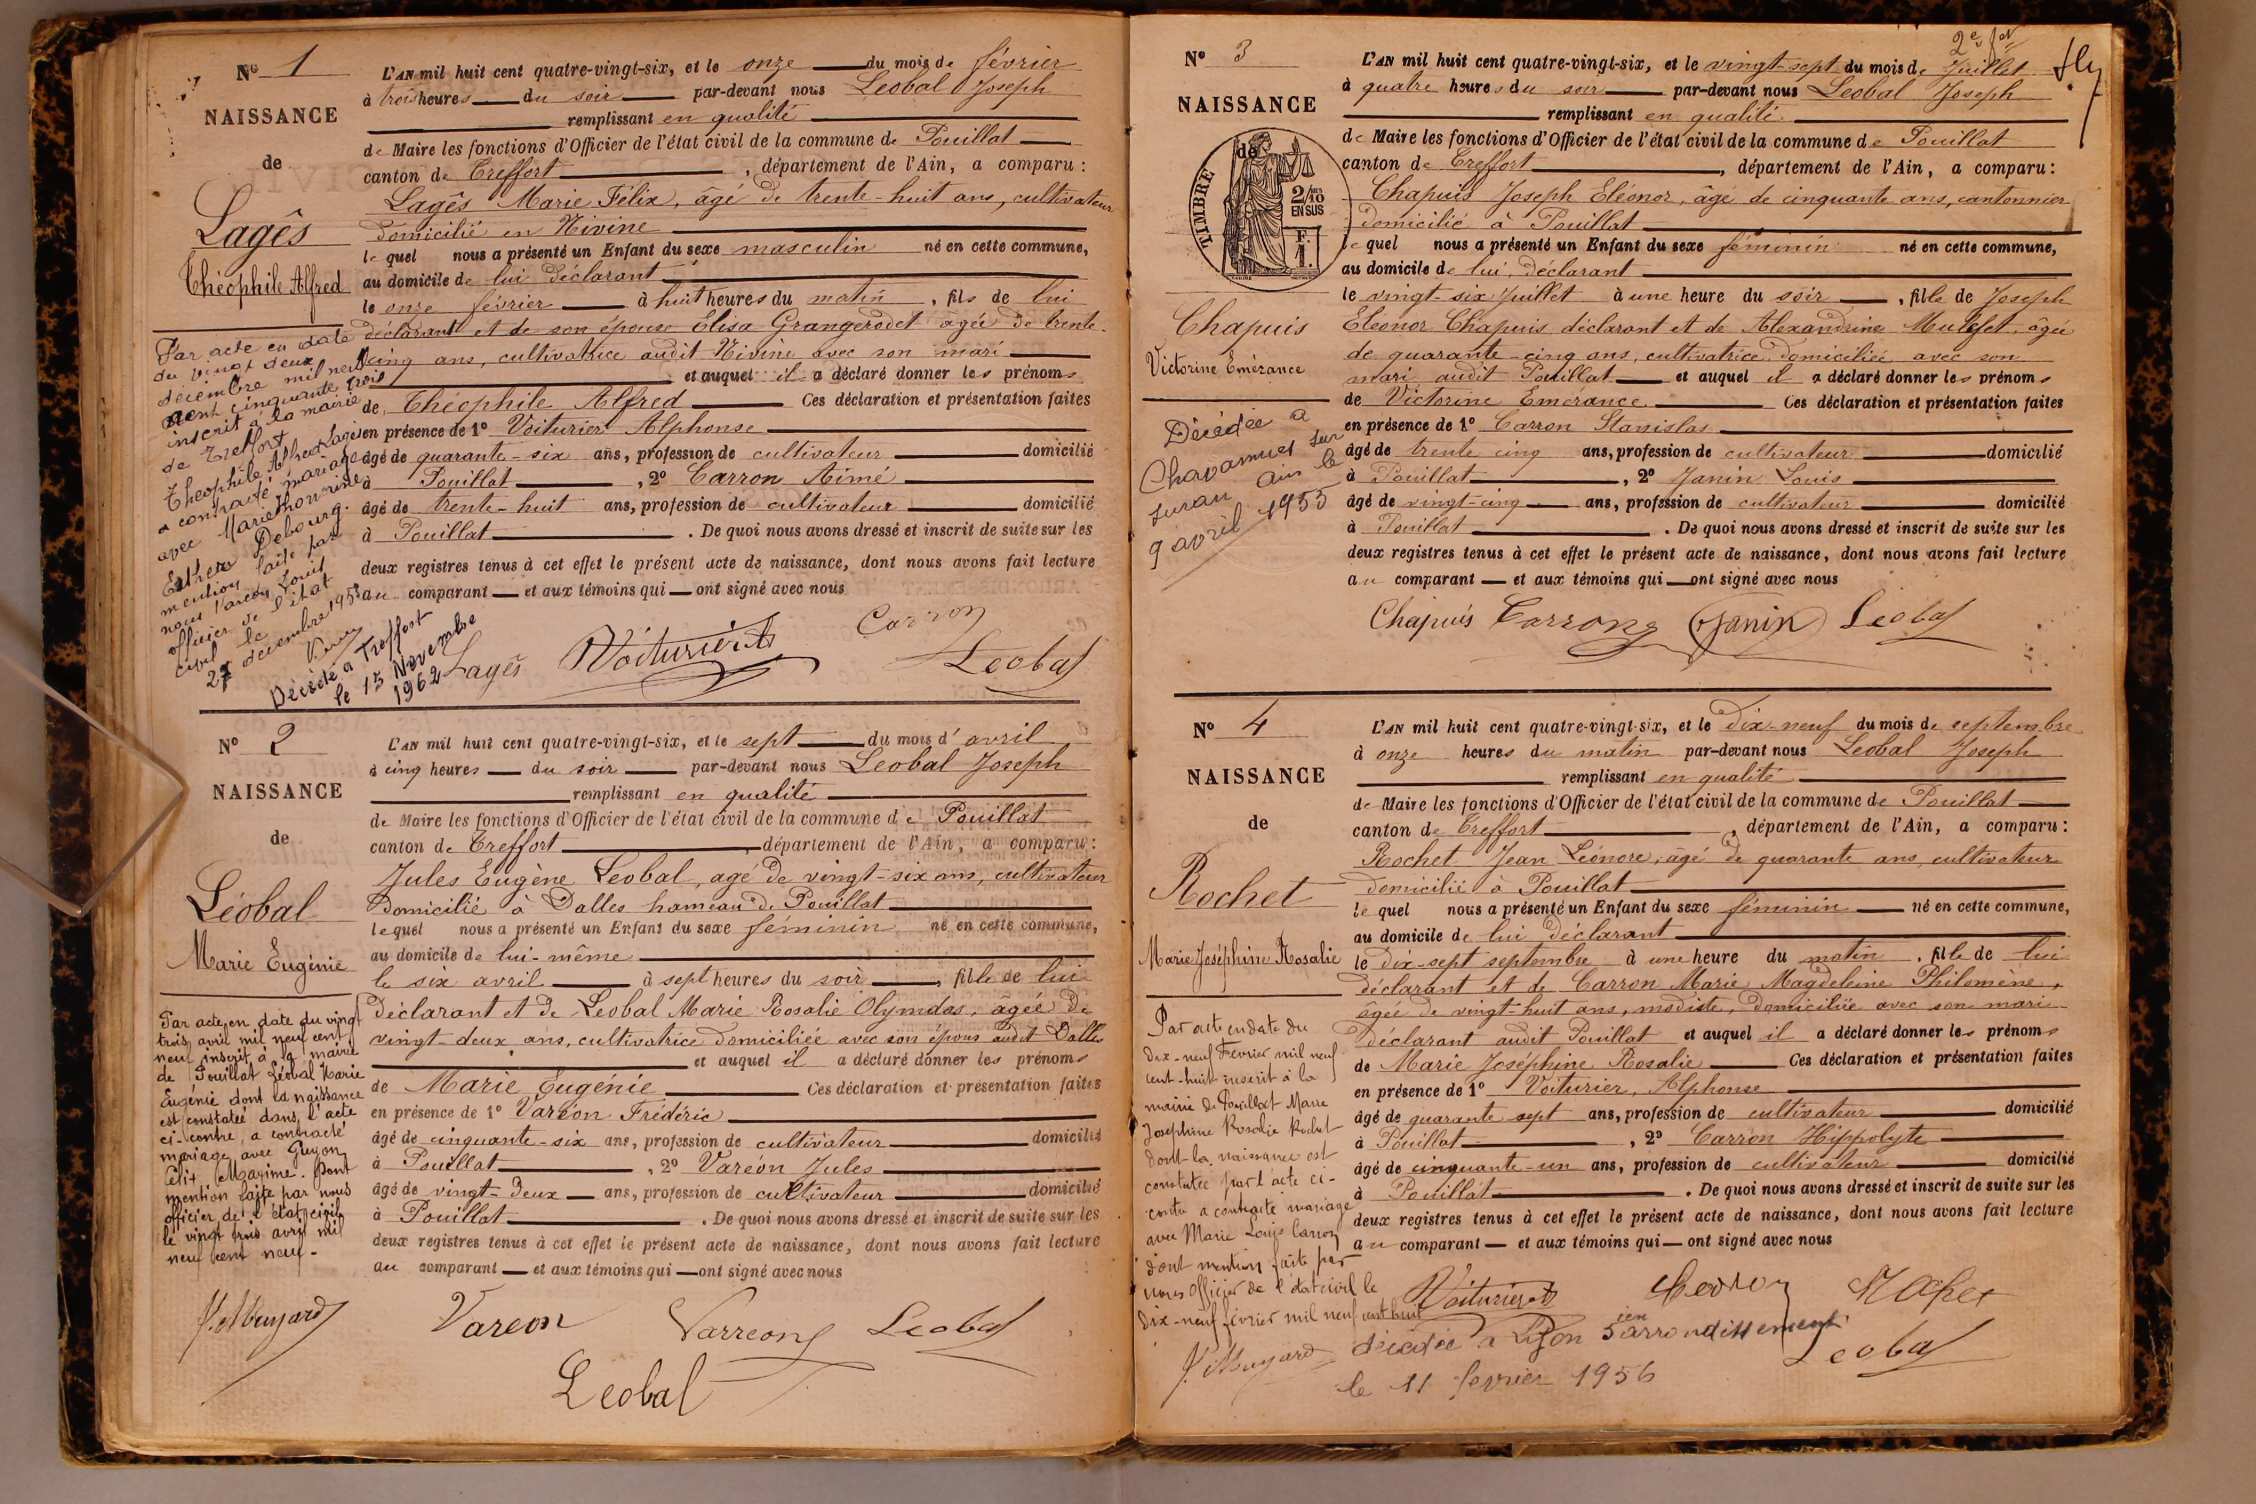 Nº 1
NAISSANCE
de
Lagês
Théophile Alfred
Par acte en date
du vingt deux
décembre mil neuf
cent cinquante trois
inscrit à la mairie
de Treffort
Théophile Alfred Lagês
a contracté mariage
avec Marie Honorine
Esther Debourg.
mention faite par
nous Varéon Louis
officier de l'état
civil le
27 décembre 1953
Décédé à Treffort
le 15 Novembre
1962
L'AN mil huit cent quatre-vingt-six, et le onze du mois de février
à trois heures du soir par-devant nous Leobal Joseph
remplissant en qualité
de Maire les fonctions d'Officier de l'état civil de la commune de Pouillat
canton de Treffort , département de l'Ain, a comparu :
Lagês Marie Félix, âgé de trente-huit ans, cultivateur
domicilié en Nivine
lequel nous a présenté un Enfant du sexe masculin né en cette commune,
au domicile de lui déclarant
le onze février à huit heures du matin , fils de lui
déclarant et de son épouse Elisa Grangerodet âgée de trente-
cinq ans, cultivatrice audit Nivine avec son mari
et auquel il a déclaré donner les prénoms
de Théophile Alfred Ces déclaration et présentation faites
en présence de 1º Voiturier Alphonse
âgé de quarante-six ans, profession de cultivateur domicilié
à Pouillat , 2º Carron Aimé
âgé de trente-huit ans, profession de cultivateur domicilié
à Pouillat . De quoi nous avons dressé et inscrit de suite sur les
deux registres tenus à cet effet le présent acte de naissance, dont nous avons fait lecture
au comparant et aux témoins qui ont signé avec nous
Carron
Lagês Voiturier A Leobal
Nº 2
NAISSANCE
de
Léobal
Marie Eugénie
Par acte en date du vingt
trois avril mil neuf cent
neuf inscrit à la mairie
de Pouillat Léobal Marie
Eugénie dont la naissance
est constatée dans l'acte
ci-contre, a contracté
mariage avec Guyon
Célit Maxime. Dont
mention faite par nous
officier de l'état civil
le vingt trois avril mil
neuf cent neuf-
L'AN mil huit cent quatre-vingt-six, et le sept du mois d'avril
à cinq heures du soir par-devant nous Leobal Joseph
remplissant en qualité
de Maire les fonctions d'Officier de l'état civil de la commune de Pouillat
canton de Treffort , département de l'Ain, a comparu :
Jules Eugène Leobal, agé de vingt-six ans, cultivateur
domicilié à Dalles hameau de Pouillat
lequel nous a présenté un Enfant du sexe féminin né en cette commune,
au domicile de lui-même
le six avril à sept heures du soir , fille de lui
déclarant et de Léobal Marie Rosalie Olymdas, âgée de
vingt-deux ans, cultivatrice domiciliée avec son épous audit Dalles
et auquel il a déclaré donner les prénoms
de Marie Eugénie Ces déclaration et présentation faites
en présence de 1º Varéon Frédéric
âgé de cinquante-six ans, profession de cultivateur domicilié
à Pouillat , 2º Varéon Jules
âgé de vingt-deux ans, profession de cultivateur domicilié
à Pouillat . De quoi nous avons dressé et inscrit de suite sur les
deux registres tenus à cet effet le présent acte de naissance, dont nous avons fait lecture
au comparant et aux témoins qui ont signé avec nous
Vareon Varreong Leobal
Leobal
Nº 3
NAISSANCE
de
TIMBRE
2/10
EN SUS
F.
1.
Chapuis
Victorine Emérance
Décédée à
Chavannes sur
suran Ain le
9 avril 1953
L'AN mil huit cent quatre-vingt-six, et le vingt-sept du mois de Juillet
à quatre heures du soir par-devant nous Leobal Joseph
remplissant en qualité
de Maire les fonctions d'Officier de l'état civil de la commune de Pouillat
canton de Treffort , département de l'Ain, a comparu :
Chapuis Joseph Eléonor, âgé de cinquante ans, cantonnier
domicilié à Pouillat
lequel nous a présenté un Enfant du sexe féminin né en cette commune,
au domicile de lui, déclarant
le vingt-six Juillet à une heure du soir , fille de Joseph
Eléonor Chapuis déclarant et de Alexandrine Mulefet, âgée
de quarante-cinq ans, cultivatrice domiciliée avec son
mari audit Pouillat et auquel il a déclaré donner les prénoms
de Victorine Emerance Ces déclaration et présentation faites
en présence de 1º Carron Stanislas
âgé de trente cinq ans, profession de cultivateur domicilié
à Pouillat , 2º Janin Louis
âgé de vingt-cinq ans, profession de cultivateur domicilié
à Pouillat . De quoi nous avons dressé et inscrit de suite sur les
deux registres tenus à cet effet le présent acte de naissance, dont nous avons fait lecture
au comparant et aux témoins qui ont signé avec nous
Chapuis Carrong Janin Leobal
Nº 4
NAISSANCE
de
Rochet
Marie Joséphine Rosalie
Par acte en date du
dix-neuf Février mil neuf
cent-huit inscrit à la
mairie de Pouillat Marie
Joséphine Rosalie Rochet
dont la naissance est
constatée par l'acte ci-
contre a contracté mariage
avec Marie Louis Carron
dont mention faite par
nous Officier de l'état civil le
dix-neuf février mil neuf cent huit
L'AN mil huit cent quatre-vingt-six, et le dix-neuf du mois de septembre
à onze heures du matin par-devant nous Leobal Joseph
remplissant en qualité
de Maire les fonctions d'Officier de l'état civil de la commune de Pouillat
canton de Treffort , département de l'Ain, a comparu :
Rochet Jean Léonore, âgé de quarante ans, cultivateur
domicilié à Pouillat
lequel nous a présenté un Enfant du sexe féminin né en cette commune,
au domicile de lui déclarant
le dix-sept septembre à une heure du matin , fille de lui
déclarant et de Carron Marie Magdeleine Philomène,
âgée de vingt-huit ans, modiste, domiciliée avec son mari
déclarant audit Pouillat et auquel il a déclaré donner les prénoms
de Marie Joséphine Rosalie Ces déclaration et présentation faites
en présence de 1º Voiturier, Alphonse
âgé de quarante-sept ans, profession de cultivateur domicilié
à Pouillat , 2º Carron Hippolyte
âgé de cinquante-un ans, profession de cultivateur domicilié
à Pouillat . De quoi nous avons dressé et inscrit de suite sur les
deux registres tenus à cet effet le présent acte de naissance, dont nous avons fait lecture
au comparant et aux témoins qui ont signé avec nous
Voiturier A Carron Rochet
décédée à Lyon 5ien arrondissement
Leobal
le 11 fevrier 1956